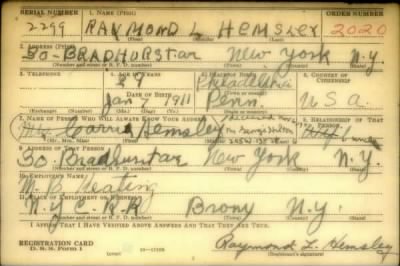 SERIAL NUMBER 1. NAME (Print) ORDER NUMBER
2299 RAYMOND L. HEMSLEY 2020
2. ADDRESS (Print)
50 BRADHURST AV. NEW YORK N.Y.
(Number and street or R. F. D. number) (Town) (County) (State)
3. TELEPHONE 4. AGE IN YEARS 5. PLACE OF BIRTH 6. COUNTRY OF CITIZENSHIP
Philadelphia
DATE OF BIRTH
Jan 7 1911 Penn. U.S.A.
(Exchange) (Number) (Mo.) (Day) (Yr.) (State or country)
7. NAME OF PERSON WHO WILL ALWAYS KNOW YOUR ADDRESS 8. RELATIONSHIP OF THAT PERSON
Mrs. Carrie Hemsley
(Mr., Mrs., Miss) (First) (Middle) (Last)
9. ADDRESS OF THAT PERSON
50 Bradhurst av New York N.Y.
(Number and street or R. F. D. number) (Town) (County) (State)
10. EMPLOYER'S NAME
W. B. Keating
11. PLACE OF EMPLOYMENT OR BUSINESS
N.Y.C.R.R. Bronx N.Y.
(Number and street or R. F. D. number) (Town) (County) (State)
I AFFIRM THAT I HAVE VERIFIED ABOVE ANSWERS AND THAT THEY ARE TRUE.
REGISTRATION CARD
D. S. S. Form 1 (over) Raymond L. Hemsley
(Registrant's signature)